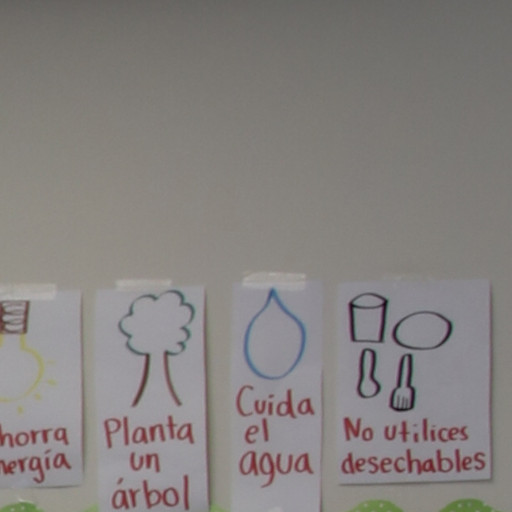 horra
nergía
Planta
un
árbol
Cuida
el
agua
No utilices
desechables